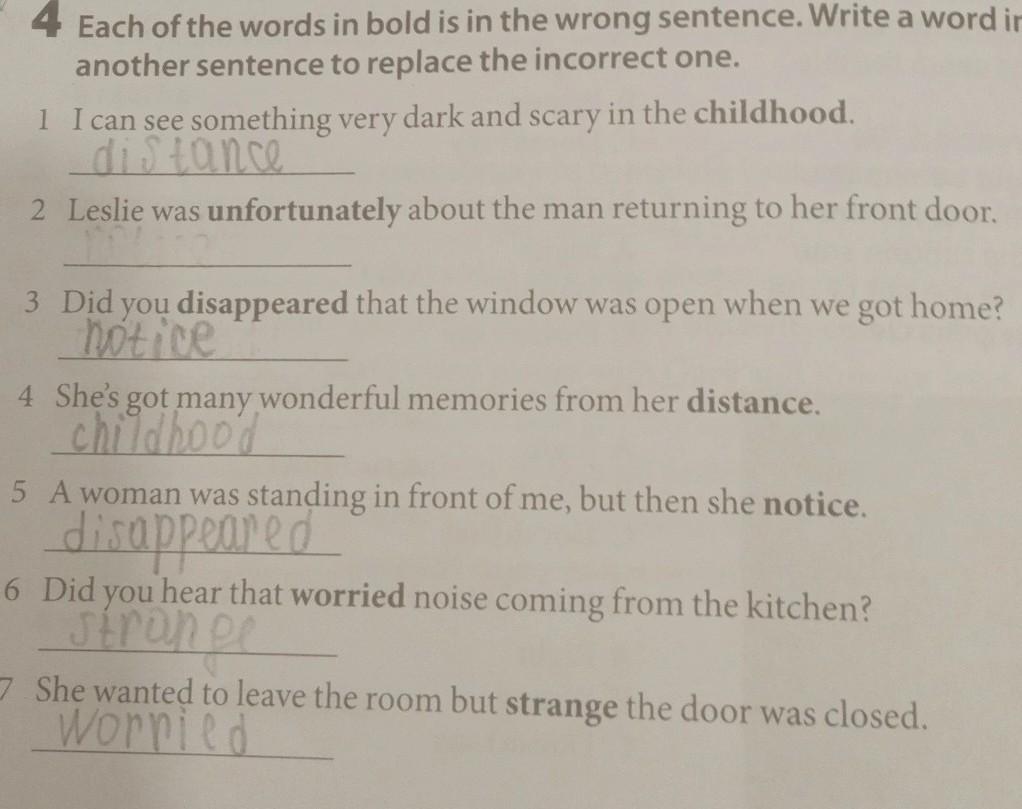 4 Each of the words in bold is in the wrong sentence. Write a word
another sentence to replace the incorrect one.
1 I can see something very dark and scary in the childhood.
distance
2 Leslie was unfortunately about the man returning to her front door.
3 Did you disappeared that the window was open when we got home?
notice
4 She's got many wonderful memories from her distance.
childhood
5 A woman was standing in front of me, but then she notice.
disappeared
6 Did you hear that worried noise coming from the kitchen?
strange
7 She wanted to leave the room but strange the door was closed.
worried